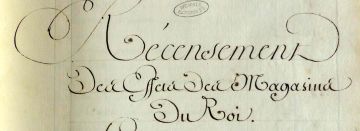 Récensement
Des Effets des Magasins
Du Roi.